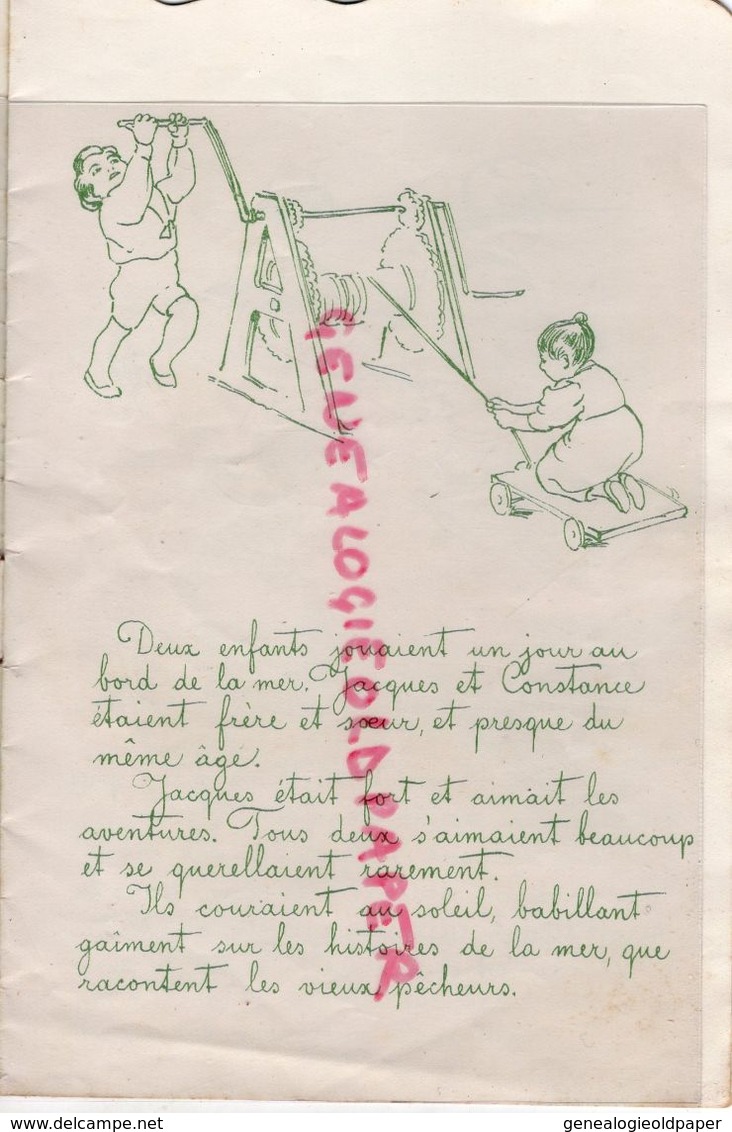 GENEALOGIEOLDPAPER
Deux enfants jouaient un jour au
bord de la mer. Jacques et Constance
étaient frère et sœur, et presque du
même âge.
Jacques était fort et aimait les
aventures. Tous deux s'aimaient beaucoup
et se querellaient rarement.
Ils couraient au soleil, babillant
gaîment sur les histoires de la mer, que
racontent les vieux pêcheurs.
genealogieoldpaper